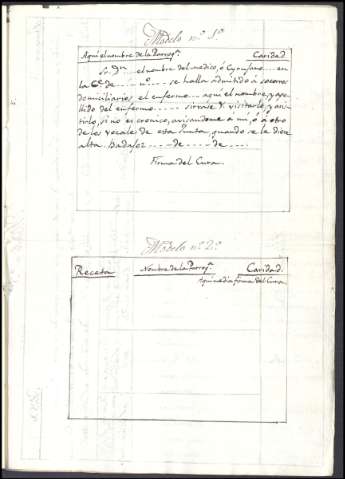 Modelo nº 1º
Aqui el nombre de la Parroqª. Caridad
Sr. Dn .... el nombre del medico, ó Cyrujano .... en
la Cª. de ..... nº .... se halla admitido á socorros
domiciliarios, el enfermo .... aqui el nombre, y ape-
llido del enfermo ...... sirvase V. visitarlo, y asis-
tirlo, si nó es cronico, avisandome á mi, ó á otro
de los vocales de esta Junta, quando se le diere
alta. Badajoz .... de ..... de ....
Firma del Cura
Modelo nº 2º
Receta Nombre de la Parroqª. Caridad.
Aqui el dia firma del Cura